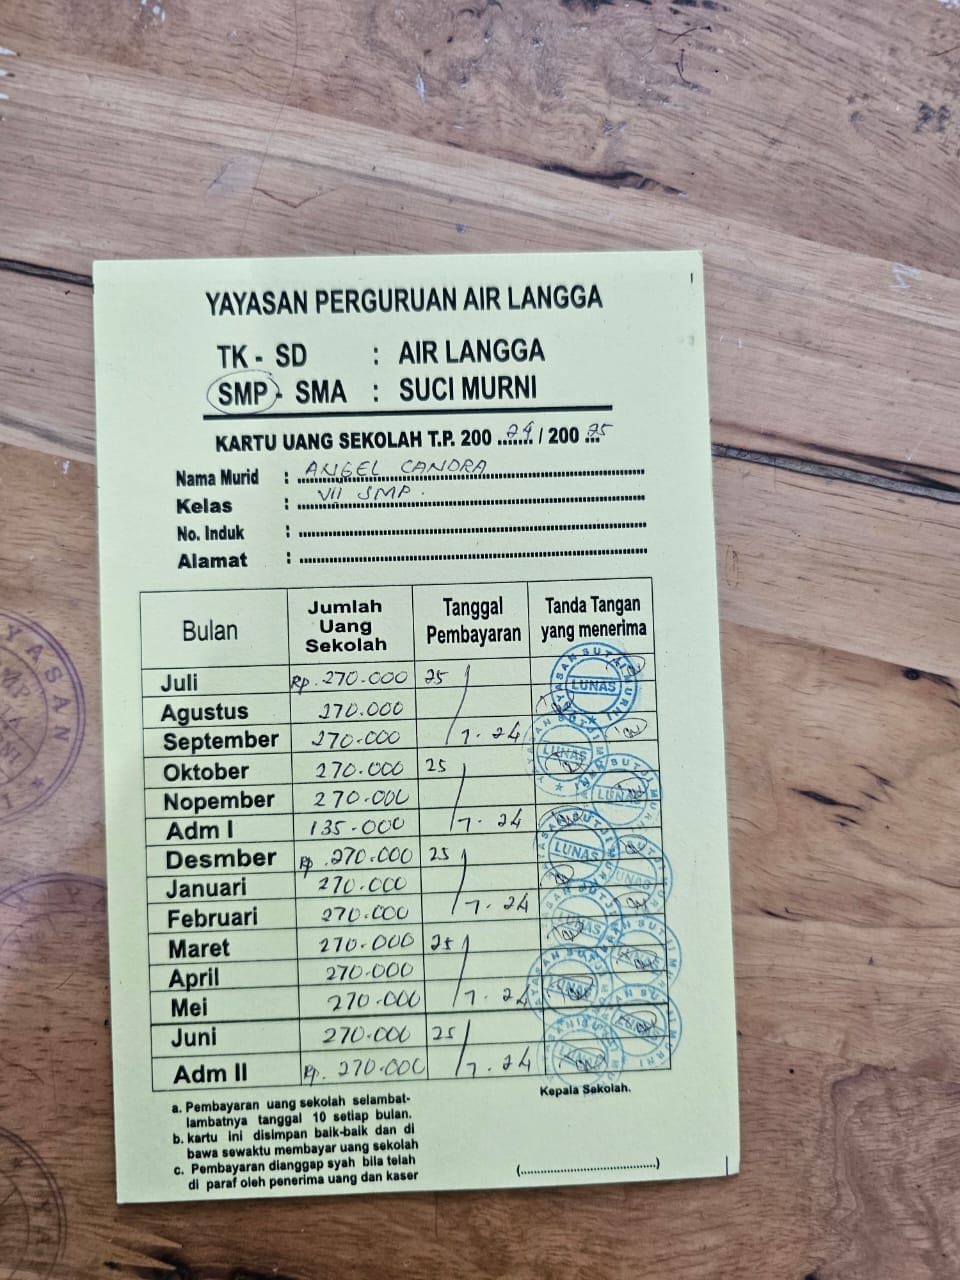 YAYASAN PERGURUAN AIR LANGGA
TK - SD : AIR LANGGA
SMP - SMA : SUCI MURNI
KARTU UANG SEKOLAH T.P. 200 24 / 200 25
Nama Murid : ANGEL CANDRA
Kelas : VII SMP.
No. Induk :
Alamat :
Bulan Jumlah Uang Sekolah Tanggal Pembayaran Tanda Tangan yang menerima
Juli Rp. 270.000 25
Agustus 270.000
September 270.000 / 7 - 24
Oktober 270.000 25
Nopember 270.000
Adm I 135.000 / 7 - 24
Desmber Rp. 270.000 25
Januari 270.000
Februari 270.000 / 7 - 24
Maret 270.000 25
April 270.000
Mei 270.000 / 7 - 24
Juni 270.000 25
Adm II Rp. 270.000 / 7 - 24
LUNAS
LUNAS
LUNAS
LUNAS
Kepala Sekolah.
a. Pembayaran uang sekolah selambat-
lambatnya tanggal 10 setiap bulan.
b. kartu ini disimpan baik-baik dan di
bawa sewaktu membayar uang sekolah
c. Pembayaran dianggap syah bila telah
di paraf oleh penerima uang dan kaser
(..........................................)
YASAN